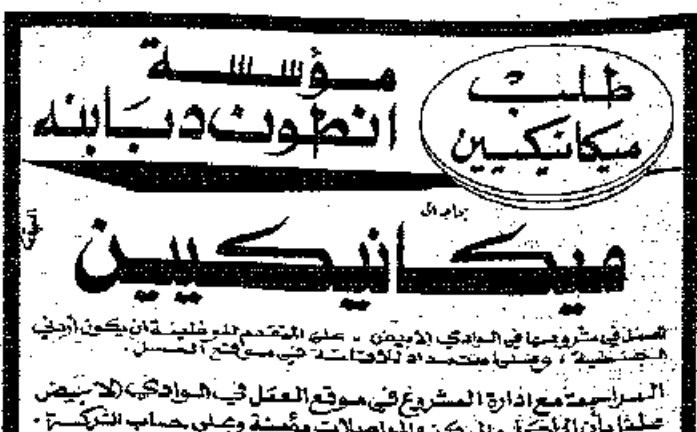 طلب
ميكانيكيين
مؤسسة
انطون دبابنه
بحاجة الى
ميكانيكيين
للعمل في مشروعها في الوادي الابيض ، على المتقدم للوظيفة ان يكون أردني
الجنسية ، وعلى استعداد للاقامة في موقع العمل .
المراجعة مع ادارة المشروع في موقع العمل في الوادي الابيض
علما بأن المأكل والسكن والمواصلات مؤمنة وعلى حساب الشركة .